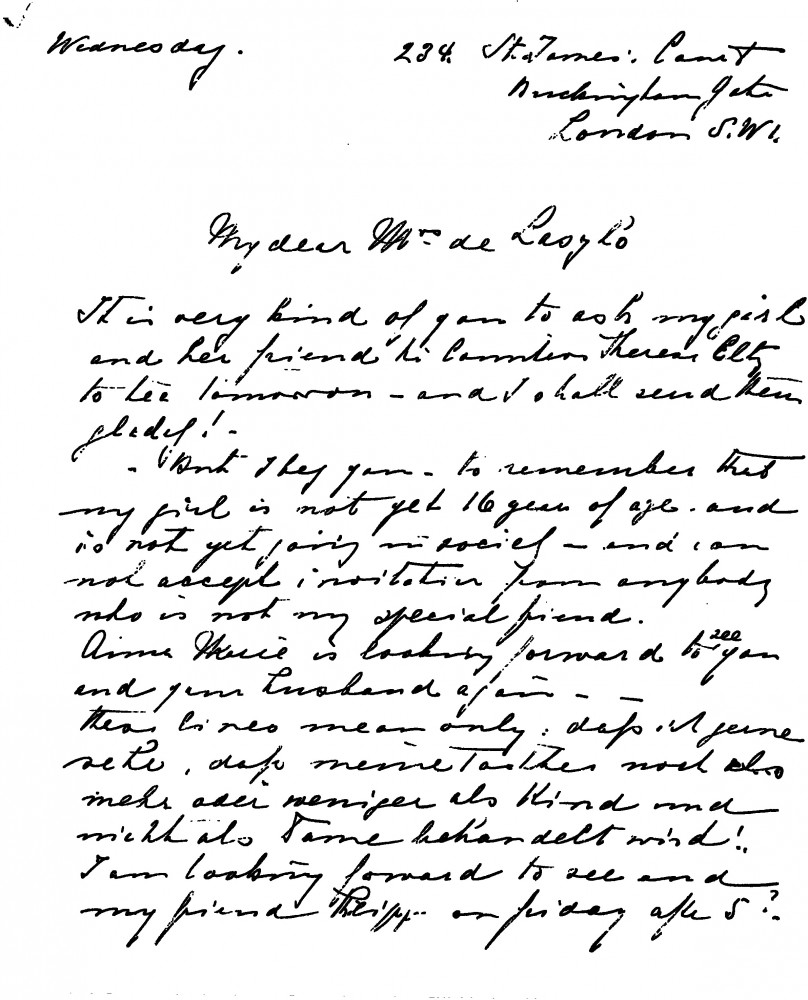 Wednesday.
234. St. James: Court
Buckingham Gate
London S.W1.
My dear Mrs de Laszlo
It is very kind of you to ask my girl
and her friend Countess Therese Eltz
to tea tomorrow – and I shall send them
gladly! –
– But I beg you – to remember that
my girl is not yet 16 years of age. and
is not yet going in society – and can
not accept invitation from anybody
who is not my special friend.
Anna Marie is looking forward to see you
and your husband again – –
these lines mean only: daß ich gerne
sehe, daß meine Tochter noch also
mehr oder weniger als Kind und
nicht als Dame behandelt wird!
I am looking forward to see and
my friend Philipp – on friday after 5?.